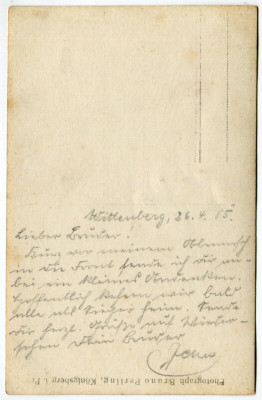 Wittenberg, 26.4.15.
Lieber Bruder!
Kurz vor meinem Abmarsch
in die Front sende ich dir an-
bei ein kleines Andenken.
Hoffentlich kehren wir bald
alle als Sieger heim. Sende
dir herzl. Grüße auf Wieder-
sehen Dein Bruder
Photograph Bruno Perling, Königsberg i. Pr